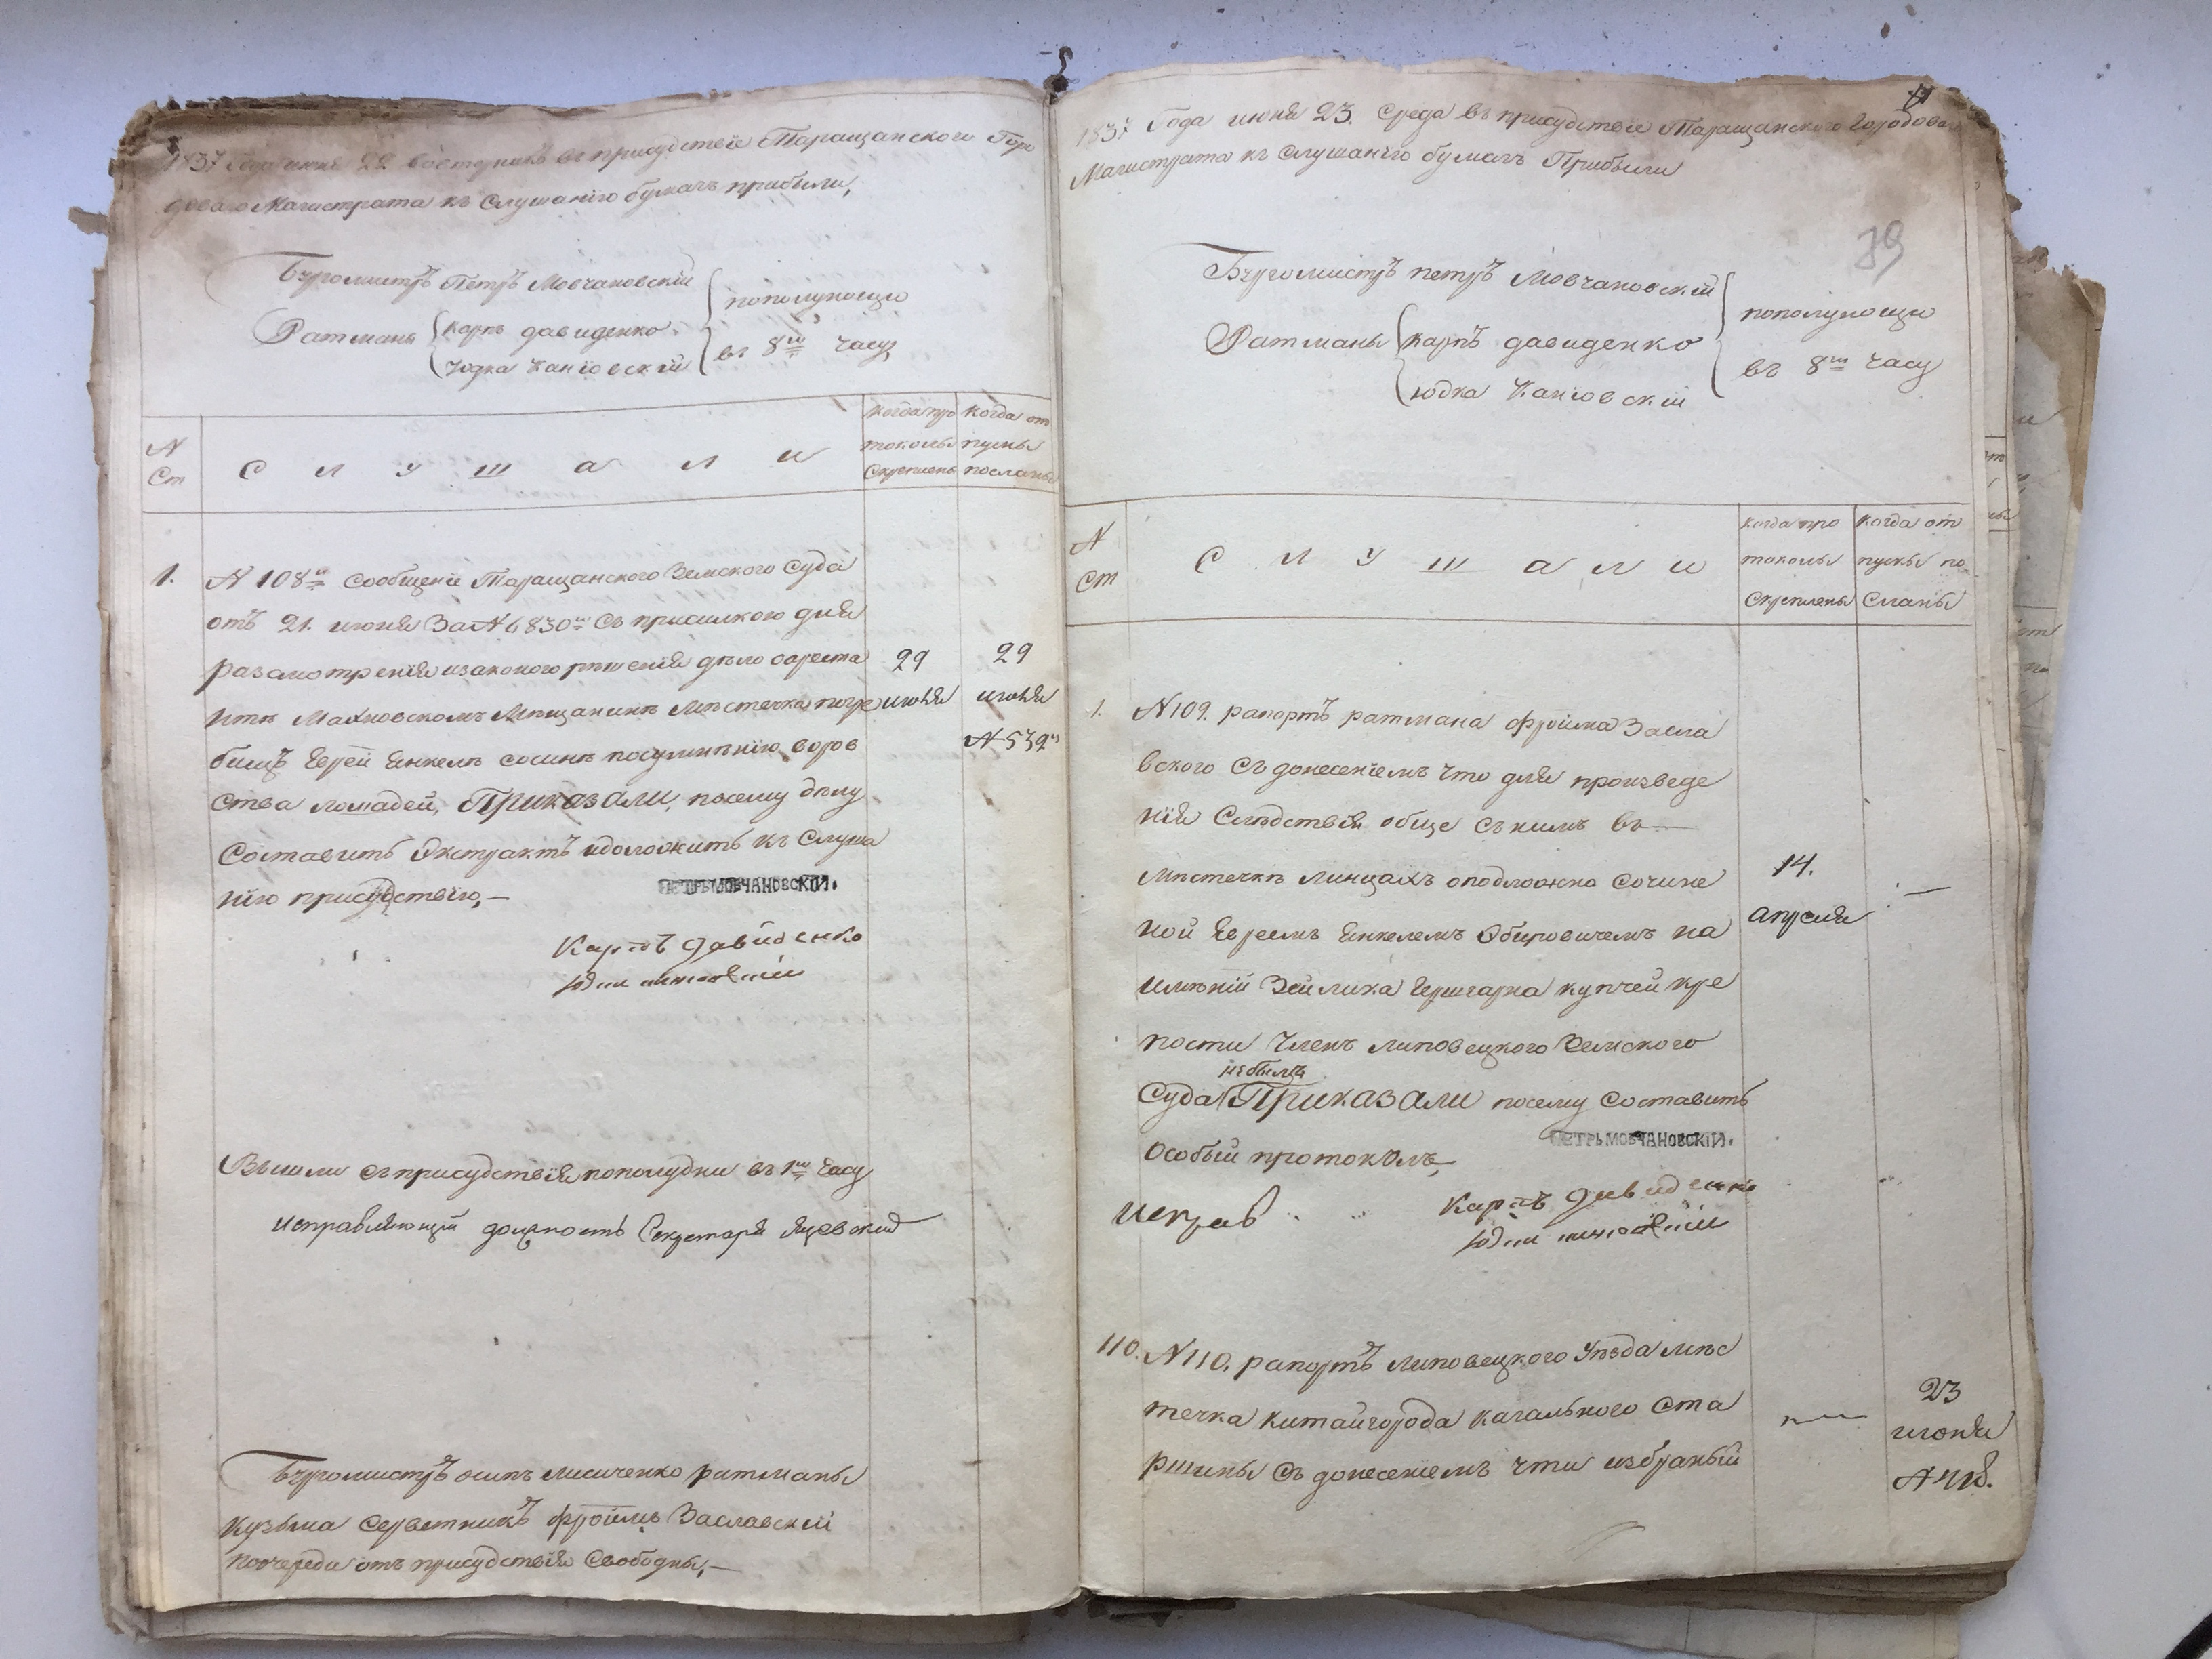 1837 Года июня 22 во вторникъ въ присудствіе Таращанского Горо
доваго Магистрата къ слушанію бумагъ прибыли,
Бургомистръ Петръ Мовчановскій
Ратманы
карпъ давиденко
Юдка Каніовскій
пополуночи
въ 8мъ часу
N
Ст
С л у ш а л и
когда про
токолы
Скреплены
когда от
пуски
посланы
1.
N 108й Сообщеніе Таращанского Земского Суда
отъ 21. июня За N 6830мъ Съ присилкою для
разсмотренія изаконого решенія дѣло оареста
нтѣ Махновскомъ Мещанинѣ местечка погре
бищъ Еврей Янкелѣ сосинѣ посумненію воров
ства лошадей, Приказали, посему делу
Составить Экстрактъ идоложить къ Слуша
нію присудствію,—
29
июня
29
июня
N 539мъ
ПЕТРЪ МОВЧАНОВСКІЙ.
Карпъ Давиденко
Вышли съ присудствія пополудни въ 1мъ часу
Исправляющій должность Секретаря Яцевский
Бургомистръ осипъ лисиченко ратманы
Кузьма Серветникъ фроимъ Заславскій
поочереди отъ присудствія Свободны,—
1837 Года июня 23. Среда въ присудствіе Таращанского Городоваго
Магистрата къ Слушанію бумагъ Прибыли
39
Бургомистръ петръ Мовчановскій
Ратманы
карпъ давиденко
юдка Каніовскій
пополуночи
въ 8мъ часу
N
Ст
С л у ш а л и
когда про
токолы
Скреплены
когда от
пуски по
сланы
1.
N 109. рапортъ ратмана фроима Засла
вского Съ донесеніемъ что для произведе
нія Следствія обще съ нимъ въ—
местечкѣ линцахъ оподложно Сочине
ной Евреемъ Янкелемъ на
именій Зейлика купчей кре
пости Членъ липовецкого Земского
небылъ
Суда Приказали посему Составить
Особый протоколъ,
14.
апреля
—
ПЕТРЪ МОВЧАНОВСКІЙ.
Исправ
Карпъ Давиденко
110.
N 110. рапортъ липовецкого Уѣзда мѣс
течка китайгорода кагального Ста
ршины Съ донесеніемъ что избраный
23
июня